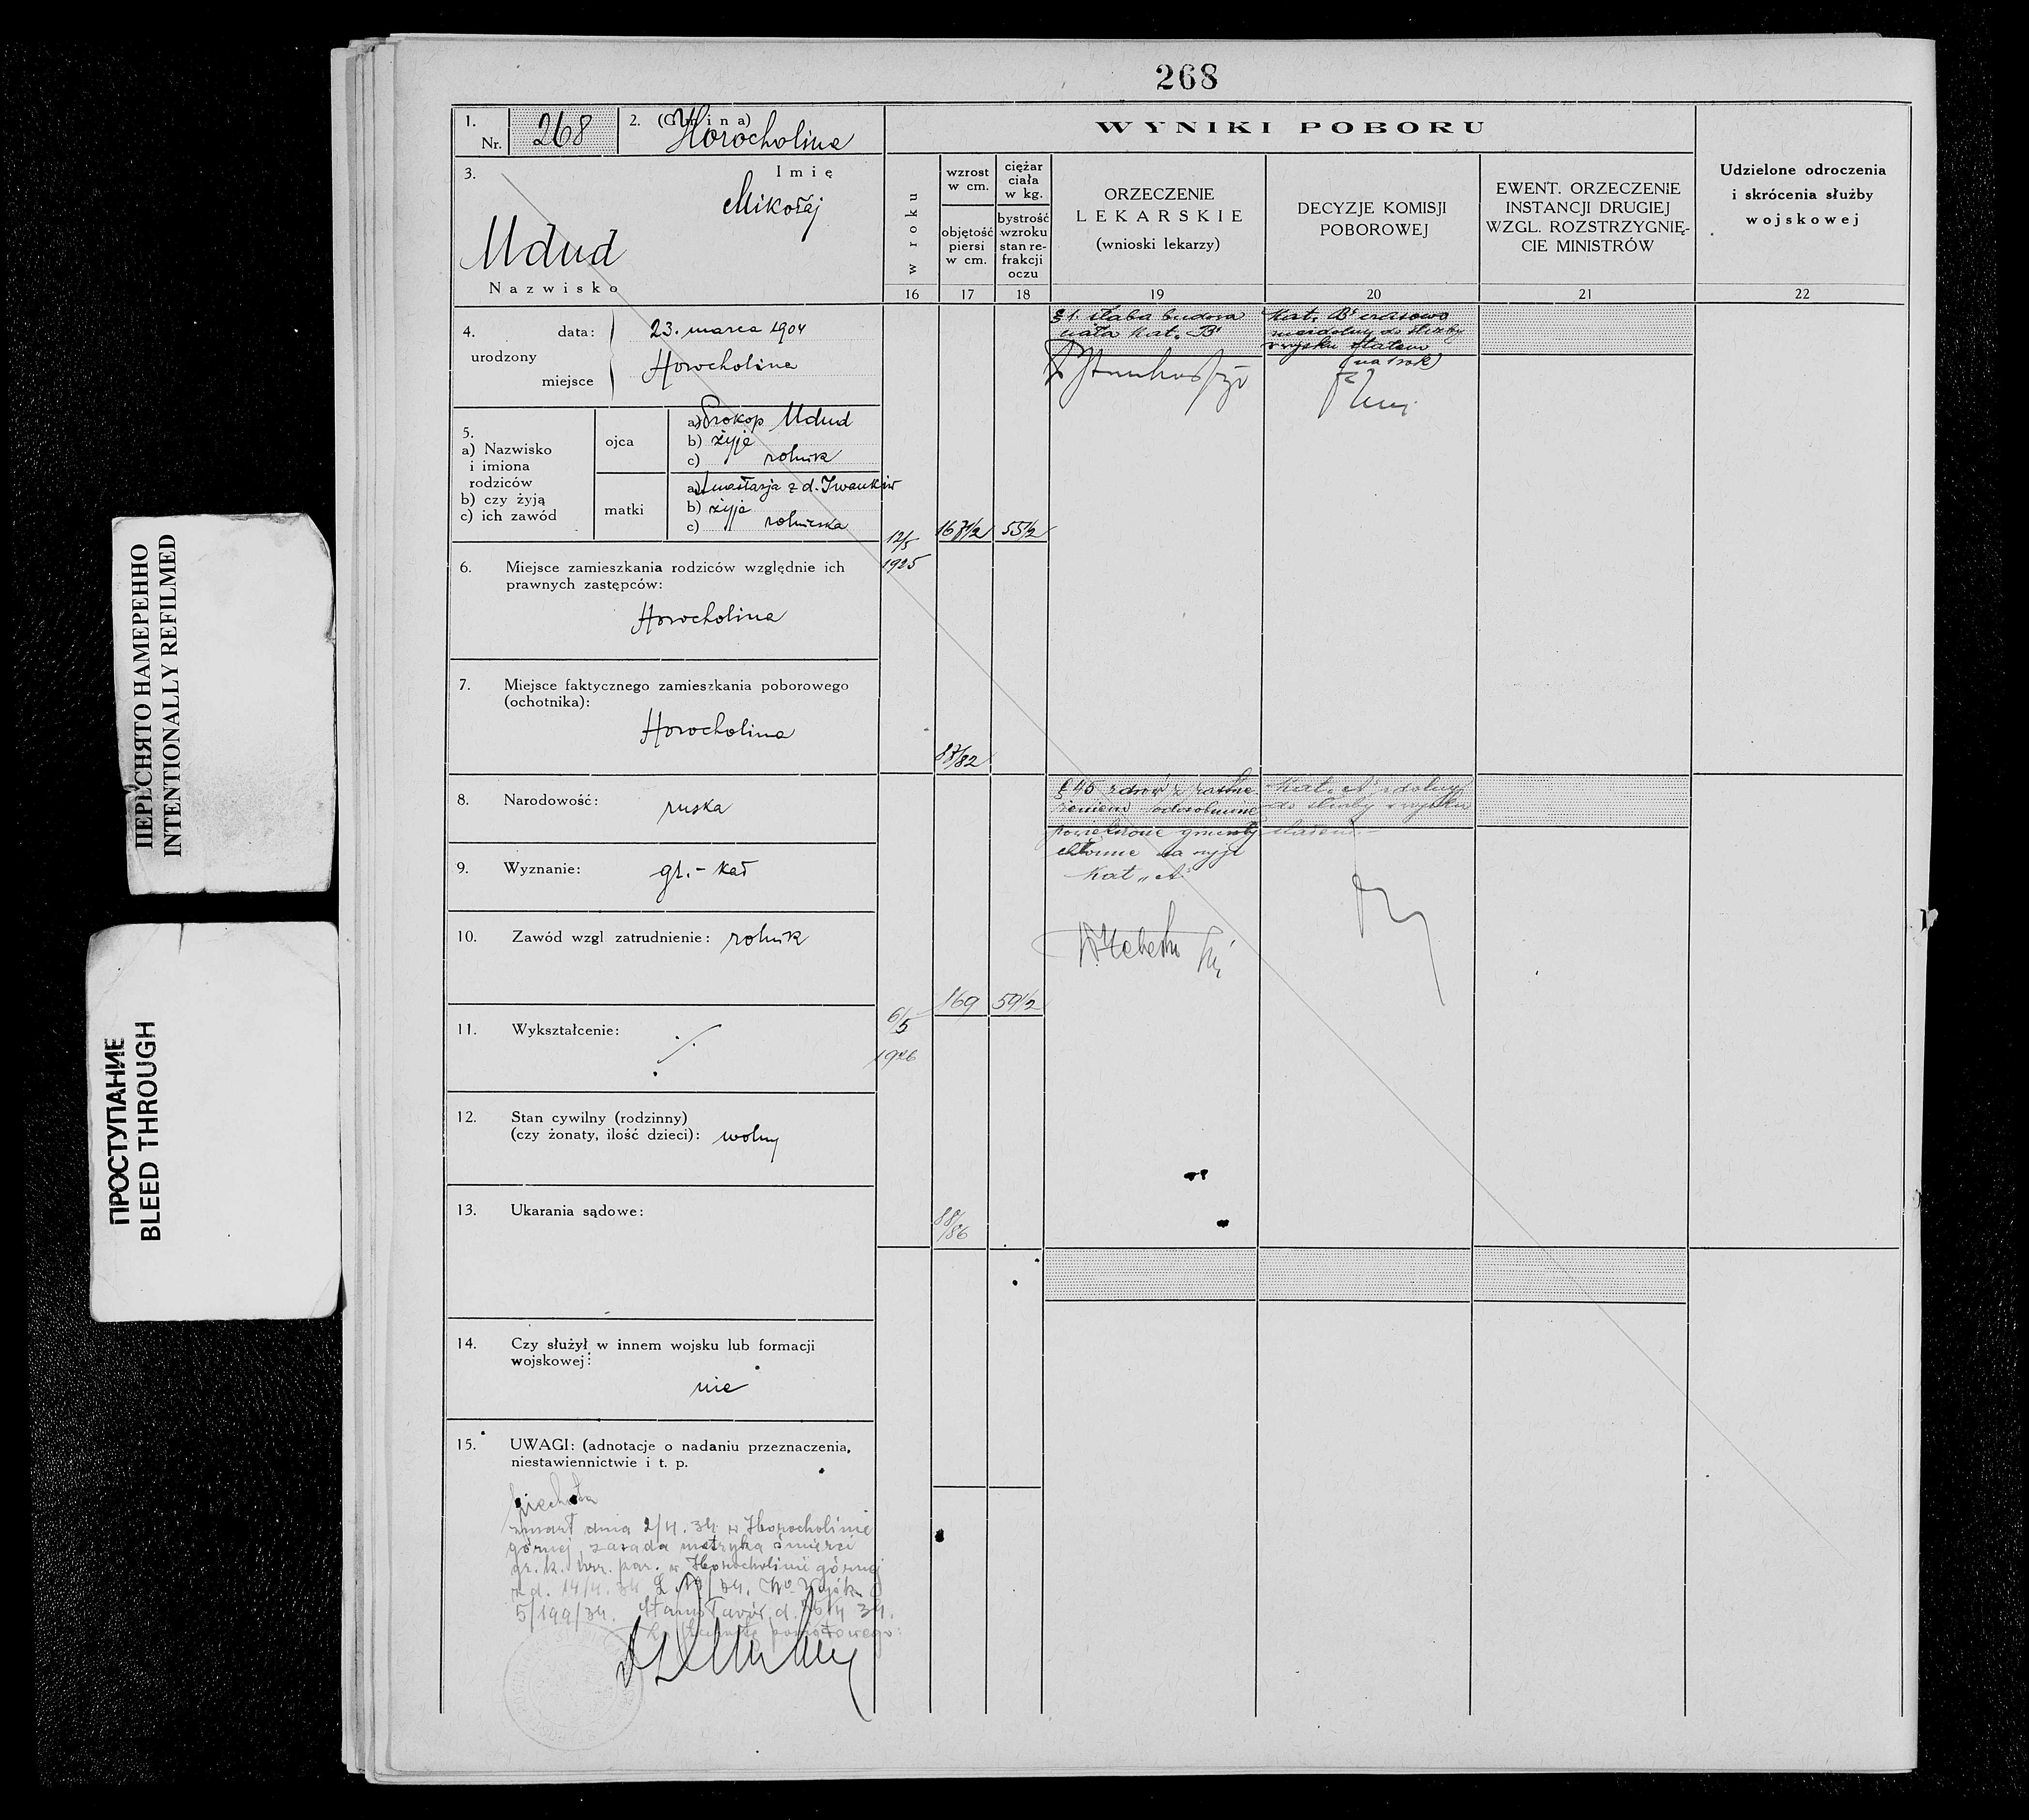 268
1.
Nr. 268
2. (Gmina) Horocholina
WYNIKI POBORU
3. Imię
Mikołaj
Mdud
Nazwisko
w roku
wzrost
w cm.
objętość
piersi
w cm.
ciężar
ciała
w kg.
bystrość
wzroku
stan re-
frakcji
oczu
ORZECZENIE
LEKARSKIE
(wnioski lekarzy)
DECYZJE KOMISJI
POBOROWEJ
EWENT. ORZECZENIE
INSTANCJI DRUGIEJ
WZGL. ROZSTRZYGNIĘ-
CIE MINISTRÓW
Udzielone odroczenia
i skrócenia służby
wojskowej
16 17 18 19 20 21 22
4.
urodzony
data: 23. marca 1904
miejsce Horocholina
5.
a) Nazwisko
i imiona
rodziców
b) czy żyją
c) ich zawód
ojca
a) Prokop Mdud
b) żyje
c) rolnik
matki
a) Anastazja z d. Iwanków
b) żyje
c) rolniczka
6. Miejsce zamieszkania rodziców względnie ich
prawnych zastępców:
Horocholina
7. Miejsce faktycznego zamieszkania poborowego
(ochotnika):
Horocholina
8. Narodowość: ruska
9. Wyznanie: gr.-kat
10. Zawód wzgl zatrudnienie: rolnik
11. Wykształcenie: ·/.
12. Stan cywilny (rodzinny)
(czy żonaty, ilość dzieci): wolny
13. Ukarania sądowe:
14. Czy służył w innem wojsku lub formacji
wojskowej:
nie
15. UWAGI: (adnotacje o nadaniu przeznaczenia,
niestawiennictwie i t. p.
piechota
zmarł dnia 2/4. 34 w Horocholinie
górnej, zasada metryka śmierci
gr. k. urz. par. w Horocholinie górnej
z d. 14/4. 34
5/199/34. Stanisławów, d.
powiatowego:
12/5
1925
55 1/2
87/82
§ 1. słaba budowa
ciała kat. B"
Kat. B" czasowo
niezdolny do służby
w wojsku stałem
(na 1 rok)
6/5
1926
169
59 1/2
88/86
§ 45 zdrów z
powiększone gruczoły
chłonne na szyji
Kat „A"
Kat. A zdolny
do służby w wojsku
stałem
ПЕРЕСНЯТО НАМЕРЕННО
INTENTIONALLY REFILMED
ПРОСТУПАНИЕ
BLEED THROUGH